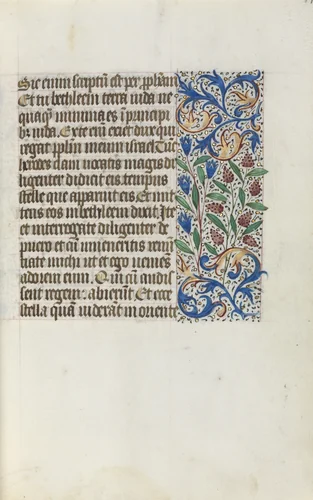 Sic enim scriptũ est per pphm̃
Et tu bethleem terra iuda ne
quaq̃ minima es i principi
bȝ iuda. Ex te em̃ exiet dux qui
regat pplm̃ meum israel. Tũc
herodes clam uocatis magis di
ligenter didicit ab eis tempus
stelle que apparuit eis. Et mit
tens eos in bethleem dixit. Ite
et interrogate diligenter de
puero et cũ inueneritis renũ
ciate michi ut et ego ueniẽs
adorem eum. Qui cũ audis
sent regem: abierũt. Et ecce
stella quã uiderãt in oriente